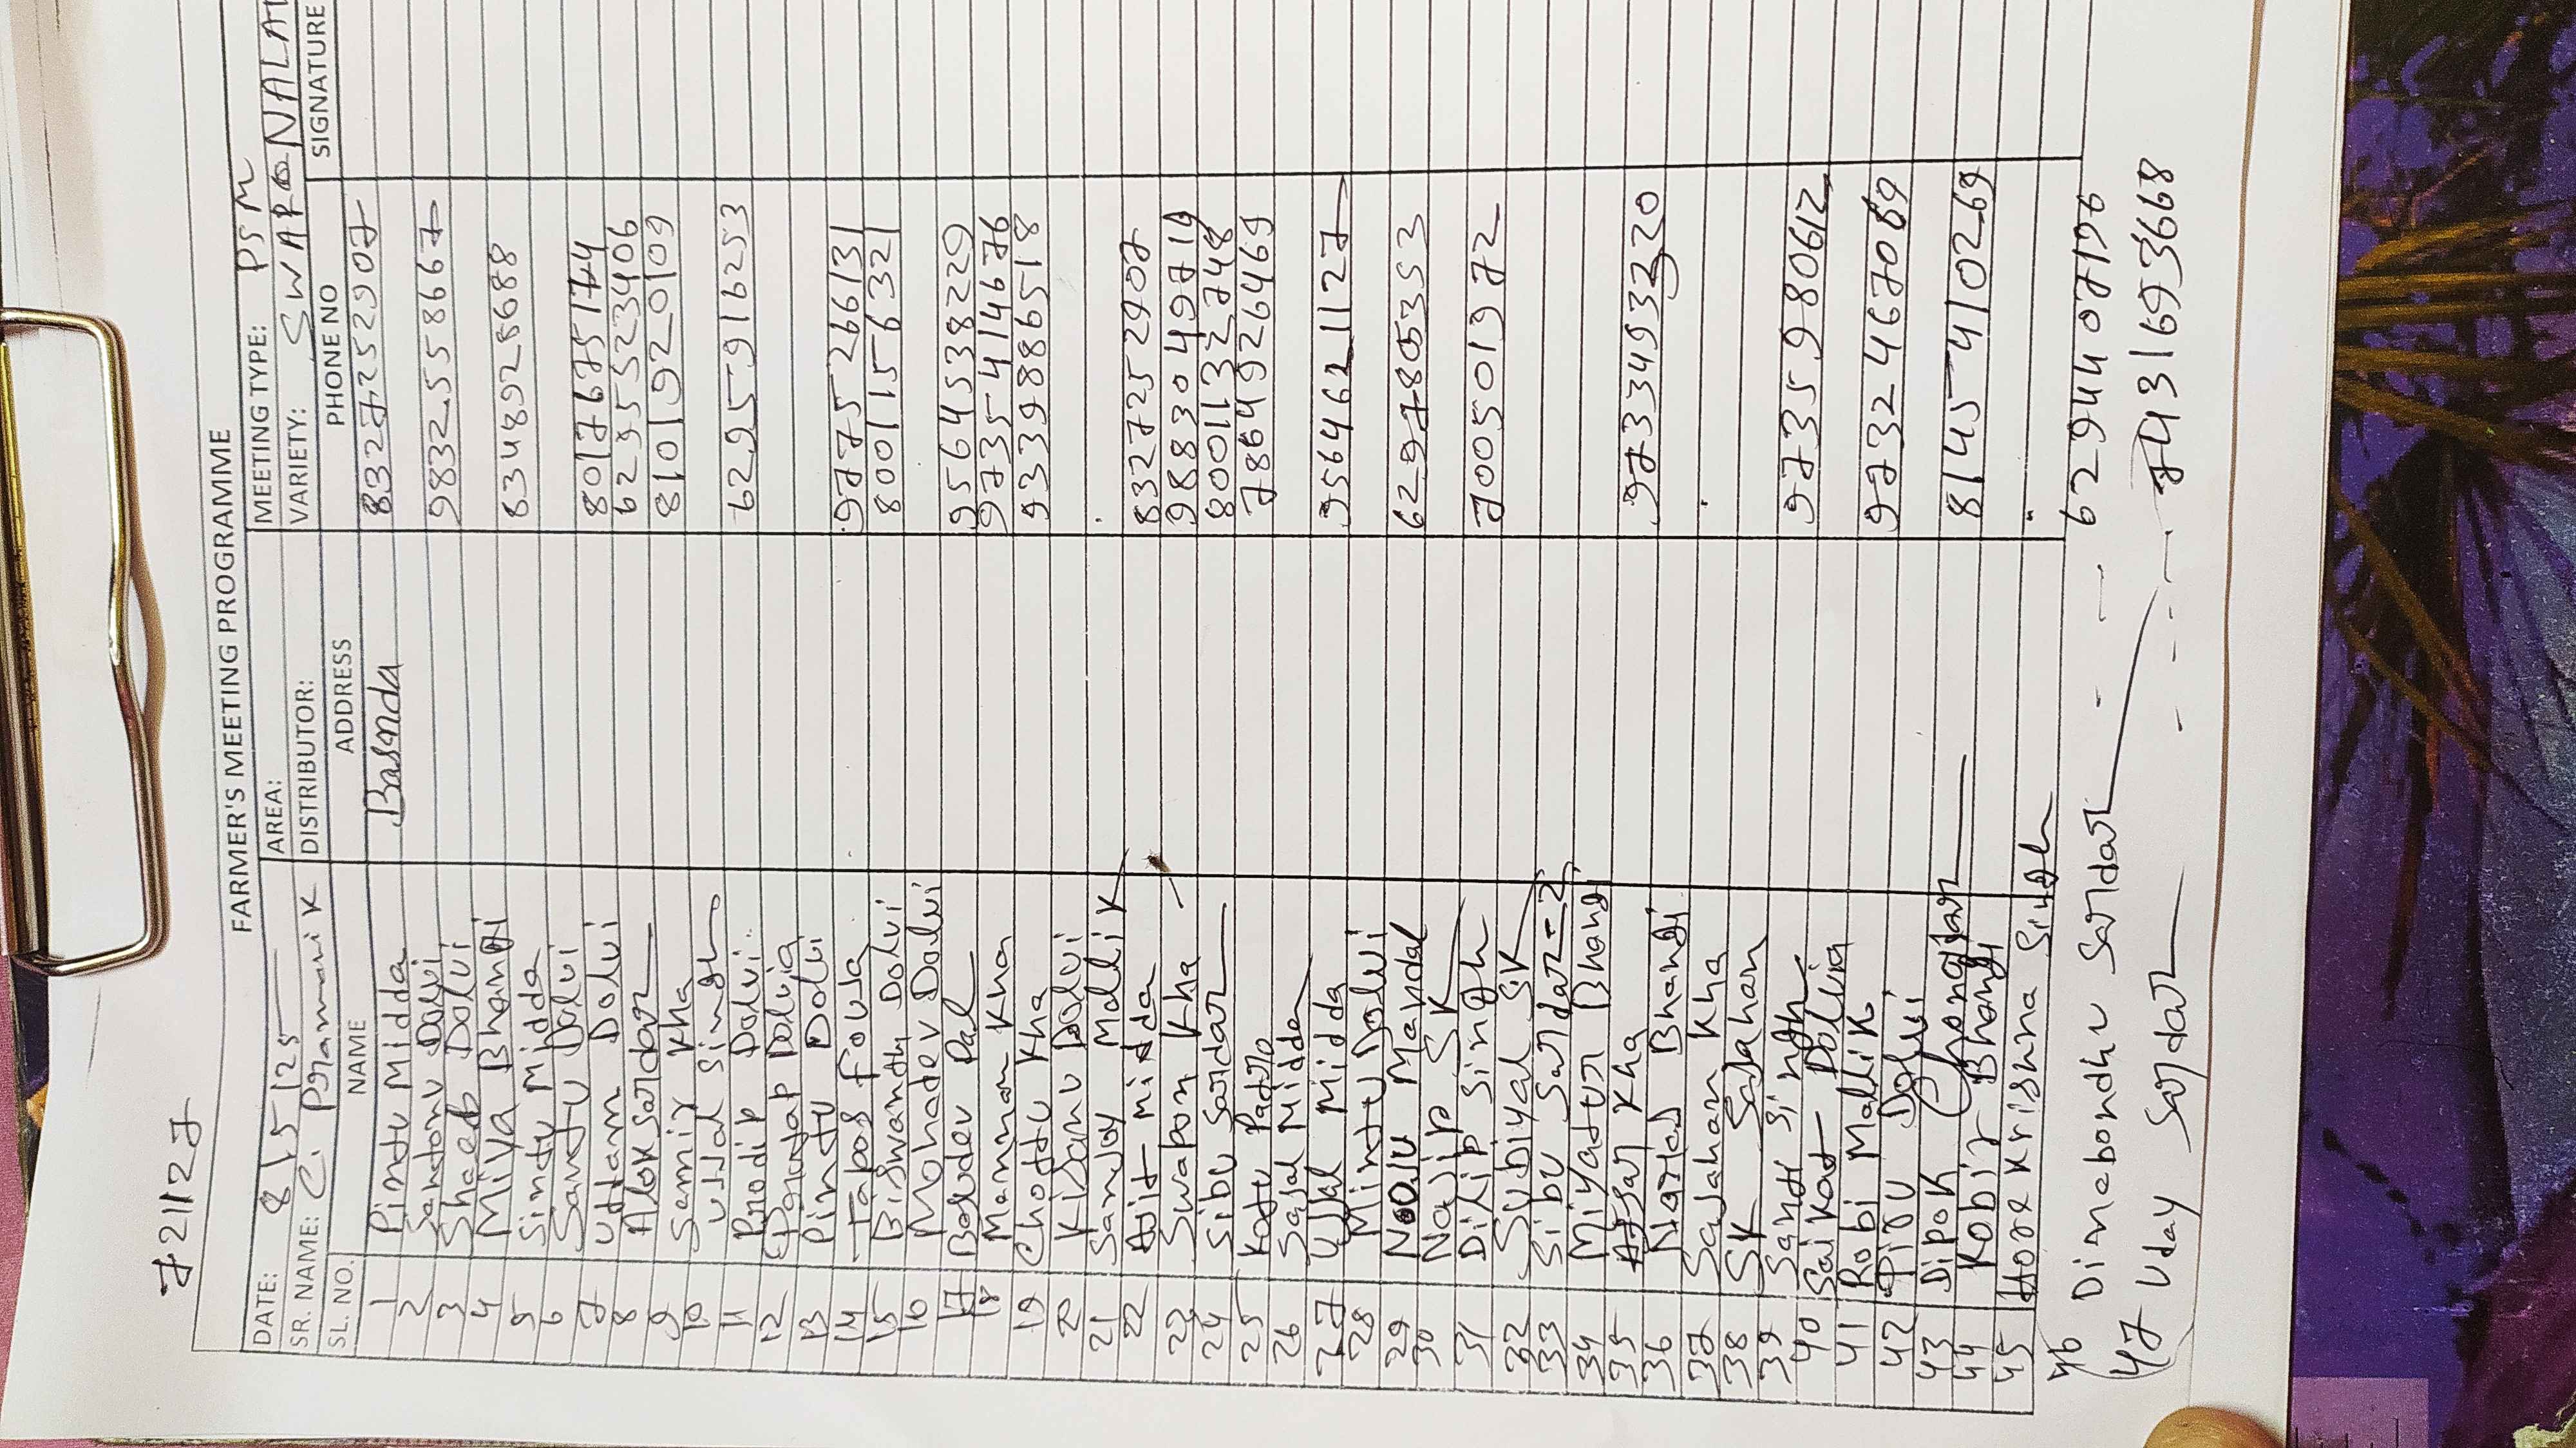 72112J
FARMER'S MEETING PROGRAMME
DATE: 8/5/25 AREA: MEETING TYPE: PSM
SR. NAME: C. Pramanik DISTRIBUTOR: VARIETY: SWARONALAT
SL. NO. NAME ADDRESS PHONE NO SIGNATURE
1 Pintu Midda Basnda 8327252907
2 Santonu Dolvi
3 Shaeb Dolvi 9832558667
4 Miya Bhangi
5 Sintu Midda 8348928688
6 Santu Dolvi
7 Uttam Dolvi 8017675174
8 Alok sardar 6295523406
9 Samir Kha 8101920109
10 Uttal Singh
11 Prodip Dolvi 6295916253
12 Dolvia
13 Pintu Dolvi
14 Tapas Fouja 9775526631
15 Biswanath Dolvi 8001156321
16 Mohadev Dolvi
17 Bolodev Pal 9564538229
18 Mannan Kha 9735414676
19 Chottu Kha 9339886518
20 Kisanu Dolvi
21 Sanjoy Mallik
22 Ajit Midda 8327252907
23 Swapon Kha 9883049719
24 Sibu Sardar 8001132748
25 Kotu Patro 7864926469
26 Sajal Midden
27 Ujjal Midda 9564621127
28 Mintu Dolvi
29 Noiju Mandal 6297805353
30 Najip SK
31 Dilip Singh 700501972
32 Subiyal SK
33 Sibu Sardar-2
34 Miyatur Bhangi
35 Afsar Kha 9733493320
36 Bhangi
37 Sajahan Kha
38 SK Sajahan
39 Santi Singh
40 Saikat Dolvia 9735980612
41 Robi Mallik
42 Dolvi 9732467069
43 Dipok
44 Kobir Bhangi 8145410269
45 Horekrishna Singh
46 Dinebondhu Sardar - - - 6294407196
47 Uday Sardar - - - 7431693668